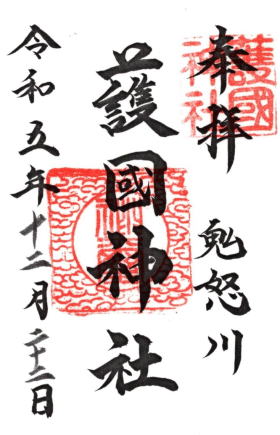 奉拝 鬼怒川
護國神社
令和五年十二月二十二日
護國神社